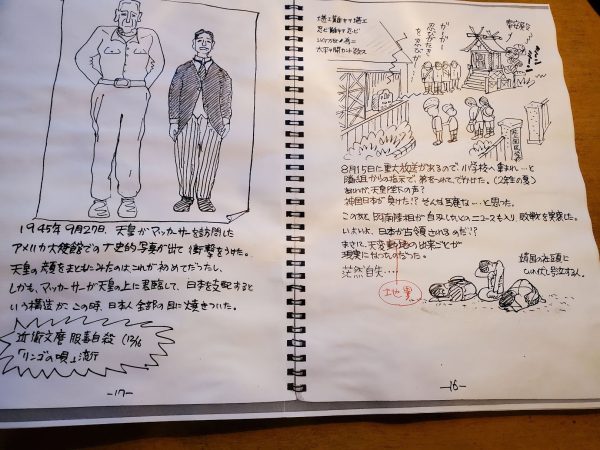 1945年9月27日、天皇がマッカーサーを訪問した
アメリカ大使館での「歴史的写真」が出て衝撃をうけた。
天皇の顔をまともにみたのはこれが初めてだったし、
しかも、マッカーサーが天皇の上に君臨して、日本を支配すると
いう構造が、この時、日本人全部の目に焼きついた。
近衛文麿 服毒自殺 (12/16
「リンゴの唄」流行
—17—
堪エ難キヲ堪エ
忍ビ難キヲ忍ビ
以テ万世ノ為ニ
太平ヲ開カント欲ス
ガーガー
忍びがたき
を忍びガー
奉安殿
8月15日に重大放送があるので、小学校へ集まれ…と
隣組からの指示で、弟をつれてでかけた。(2年生の夏)
これが、天皇陛下の声?
神国日本が負けた!? そんな馬鹿な…と思った。
このあと、阿南陸相が自刃したとのニュースも入り、敗戦を実感。
いよいよ、日本が占領されるのだ!?
まさに、天変動地の出来ごとが
現実になったのだった。
茫然自失…
地異
靖国の社頭に
ひれ伏して号泣する。
—16—